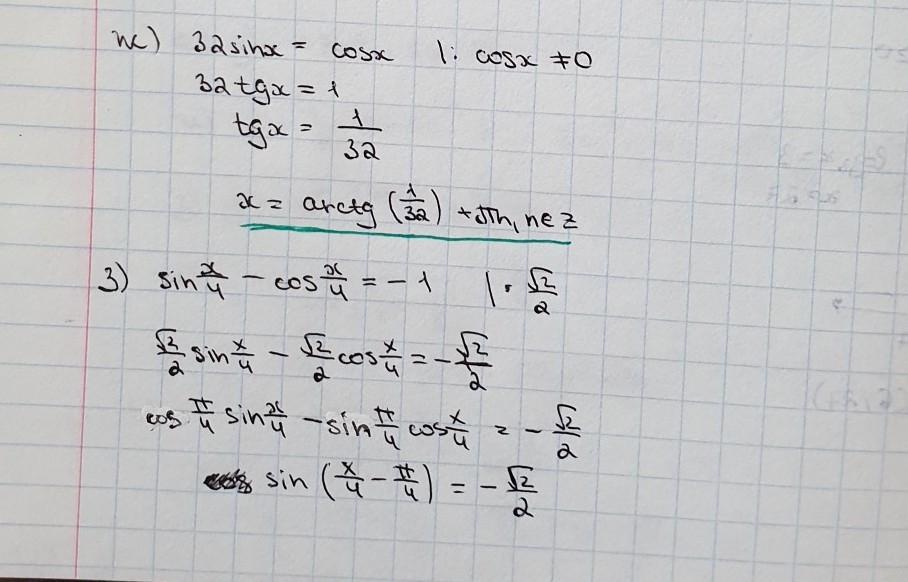 ж) 32sinx = cosx |: cosx ≠ 0
32tgx = 1
tgx = 1/32
x = arctg (1/32) + πn, n ∈ Z
з) sin x/4 − cos x/4 = −1 | · √2/2
√2/2 sin x/4 − √2/2 cos x/4 = − √2/2
cos π/4 sin x/4 − sin π/4 cos x/4 = − √2/2
sin (x/4 − π/4) = − √2/2